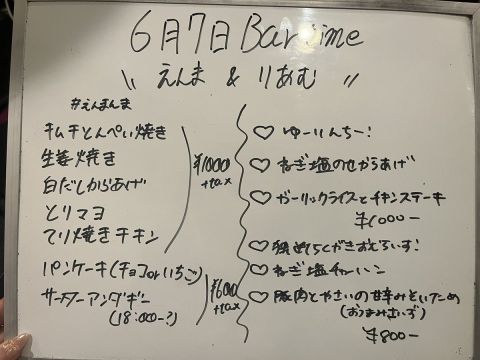 6月7日 Bar time
\\ えんま & りあむ //
#えんまんま
キムチとんぺい焼き
生姜焼き
白だしからあげ
とりマヨ
てり焼きチキン
¥1000
+tax
パンケーキ(チョコorいちご)
サーターアンダギー
(18:00〜?)
¥600
+tax
♡ ゆーりんちー!
♡ ねぎ塩のせからあげ
♡ ガーリックライスとチキンステーキ
¥1000-
♡
♡ ねぎ塩チャーハン
♡ 豚肉とやさいの甘辛みそいため
(おつまみさいず)
¥800-